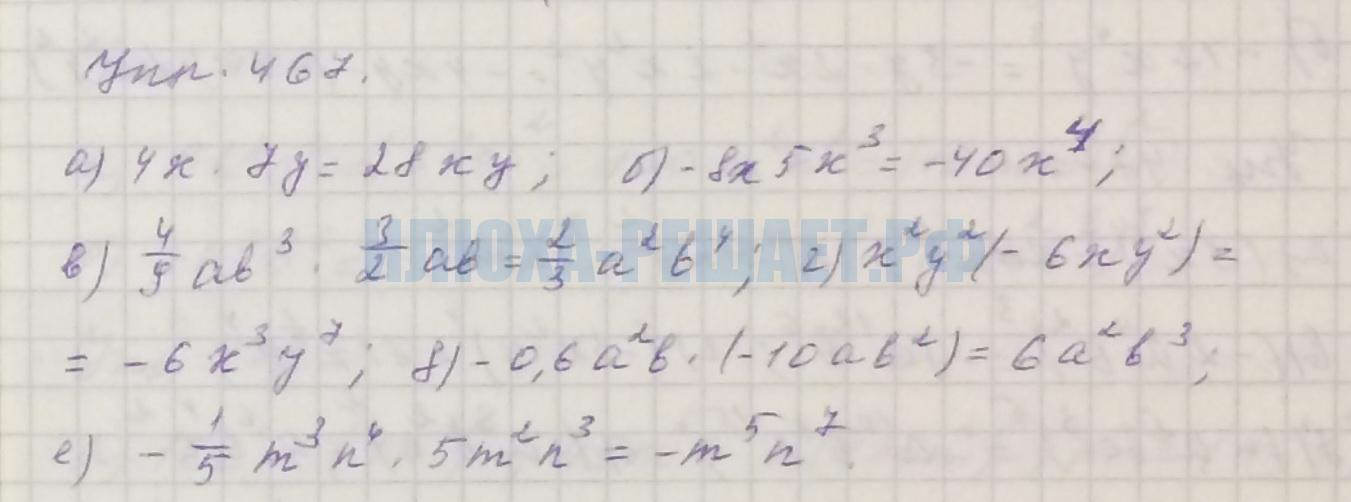 Упр. 467.
а) 4x · 7y = 28xy; б) -8x 5x³ = -40x⁴;
в) 4/9 ab³ · 3/2 ab = 2/3 a²b⁴; г) x²y²(-6xy²) =
= -6x³y⁷; д) -0,6a²b · (-10ab²) = 6a²b³;
е) -1/5 m³n⁴ · 5m²n³ = -m⁵n⁷.
ИЛЮХА-РЕШАЕТ.РФ